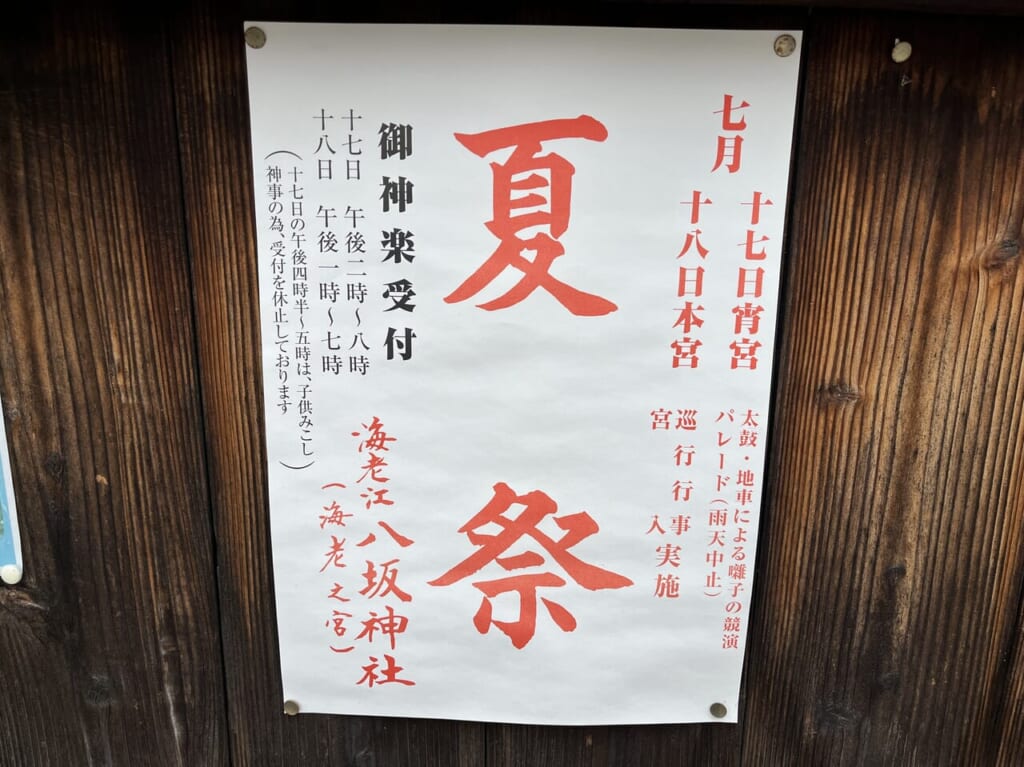 七月
十七日宵宮
十八日本宮
太鼓・地車による囃子の競演
パレード(雨天中止)
巡行行事
宮入
実施
夏祭
御神楽受付
十七日 午後二時～八時
十八日 午後一時～七時
(十七日の午後四時半～五時は、子供みこし
神事の為、受付を休止しております)
海老江八坂神社
(海老之宮)